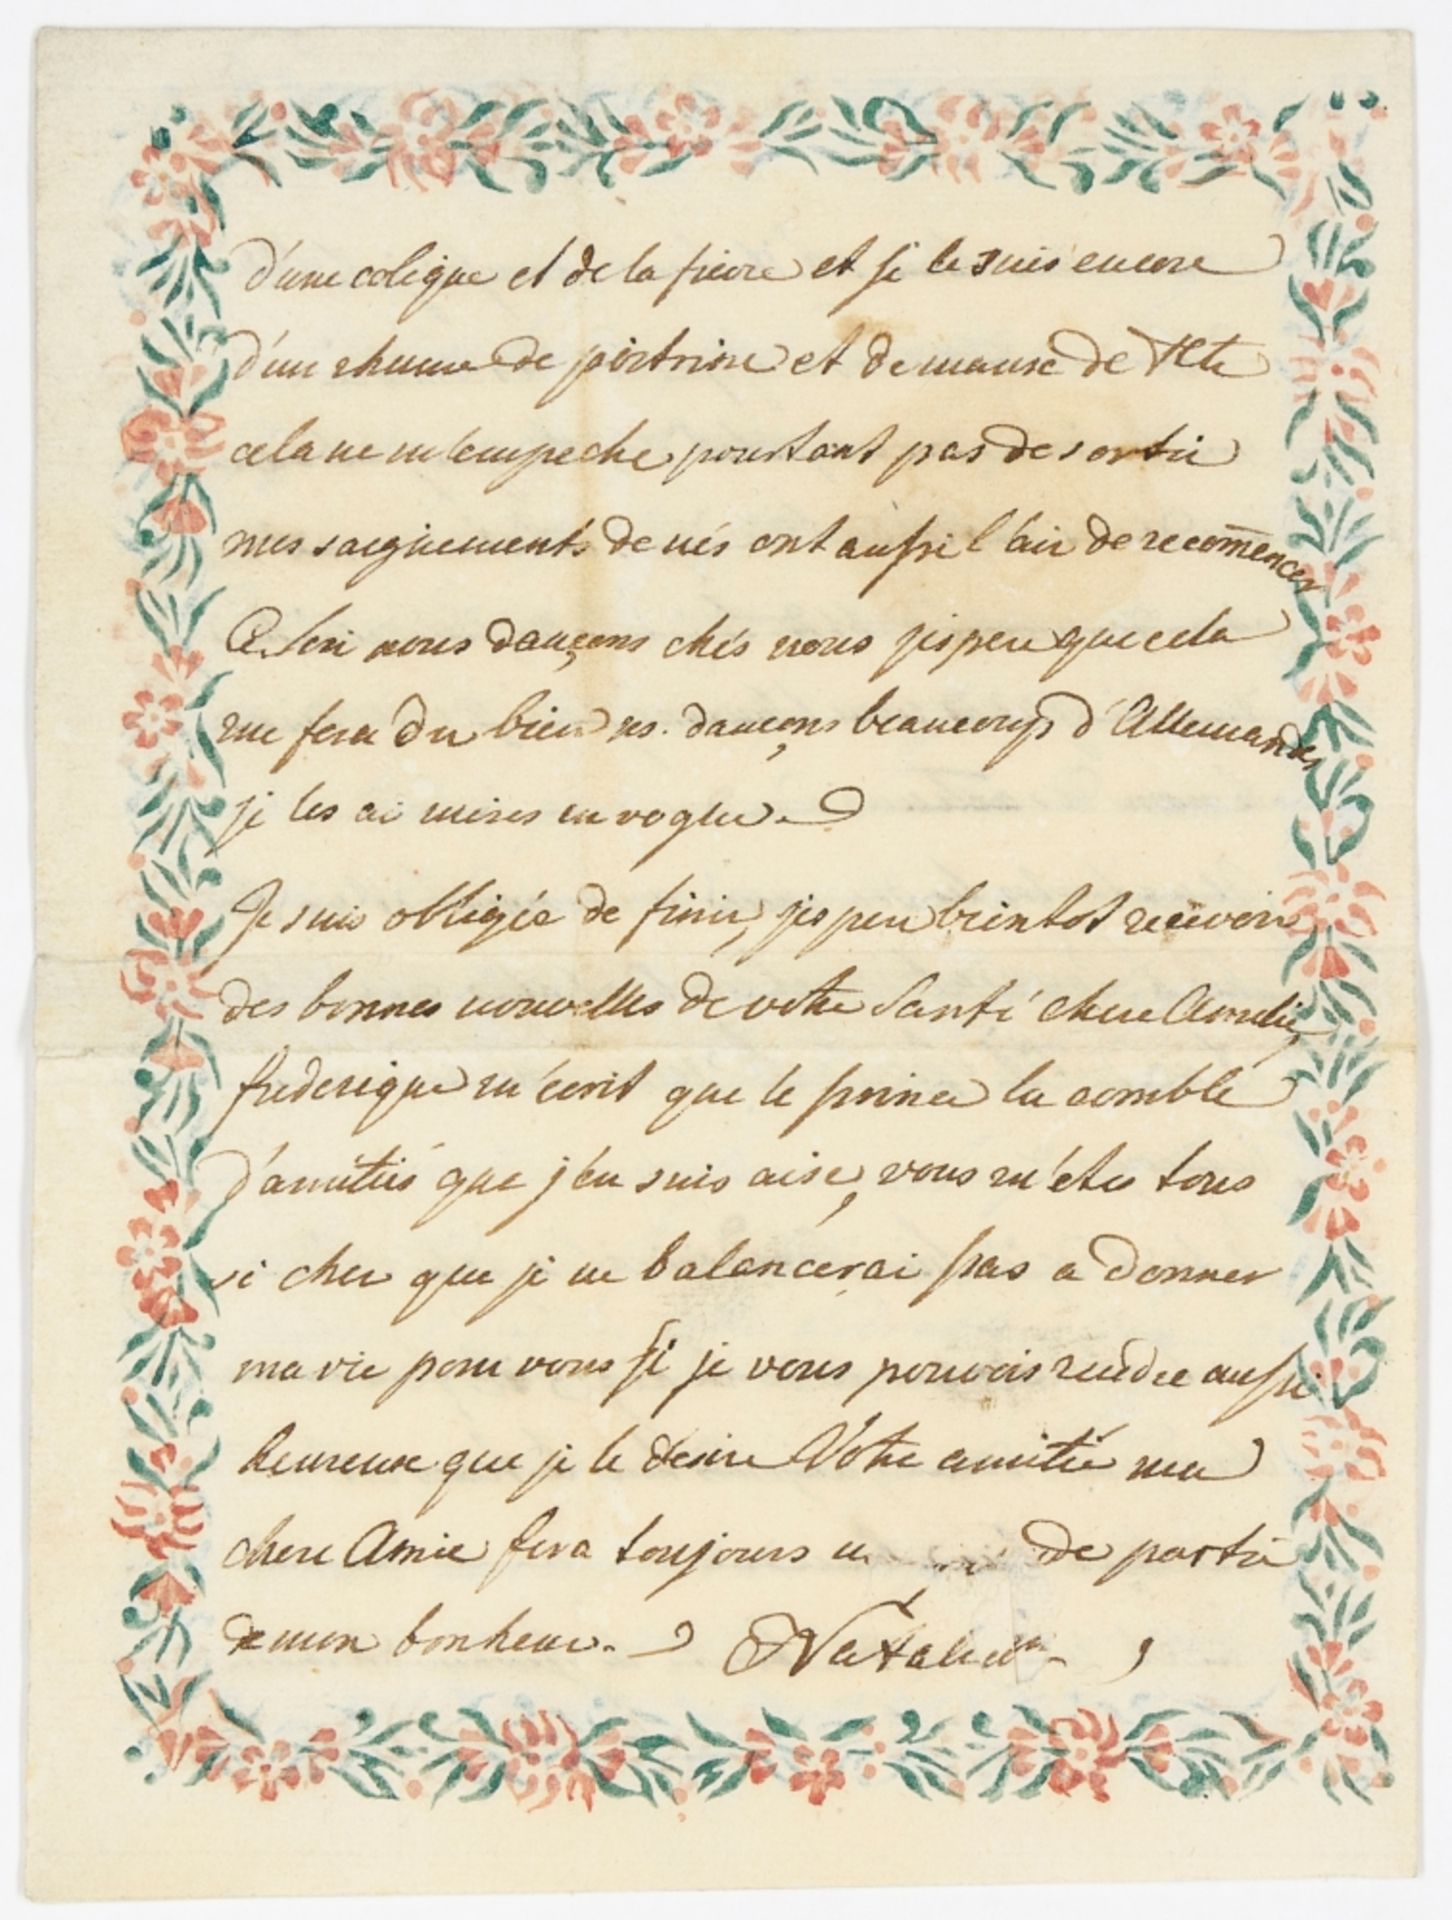 d'une colique et de la fievre et je le suis encore
d'un rhume de poitrine et de mause de tete
cela ne m'empeche pourtant pas de sortir
mes saignements de nés ont aussi l'air de recom̄encer
Ce soir nous dançons chés nous j'espere que cela
me fera du bien ns. dançons beaucoup d'Allemandes
je les ai mises en vogue.
Je suis obligée de finir, j'espere bientot recevoir
des bonnes nouvelles de votre Santé chere Amelie,
frederique m'ecrit que le prince la comble
d'amitiés que j'en suis aise, vous m'étes tous
si cher que je ne balancerai pas a donner
ma vie pour vous si je vous pouvois rendre aussi
heureuse que je le desire Votre amitié ma
chere Amie fera toujours de partie
de mon bonheur.